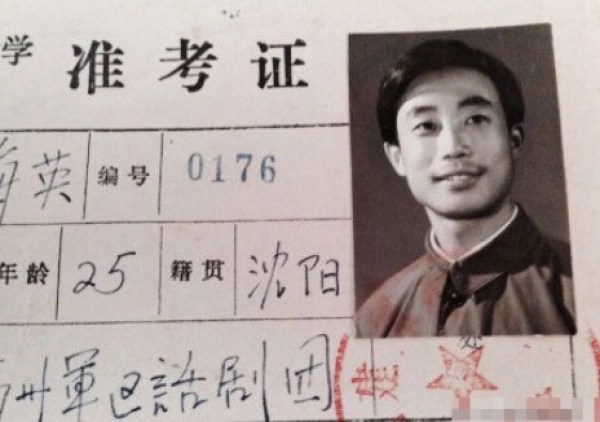 学 准考证
海英 编号 0176
年龄 25 籍贯 沈阳
州軍区話剧团
处